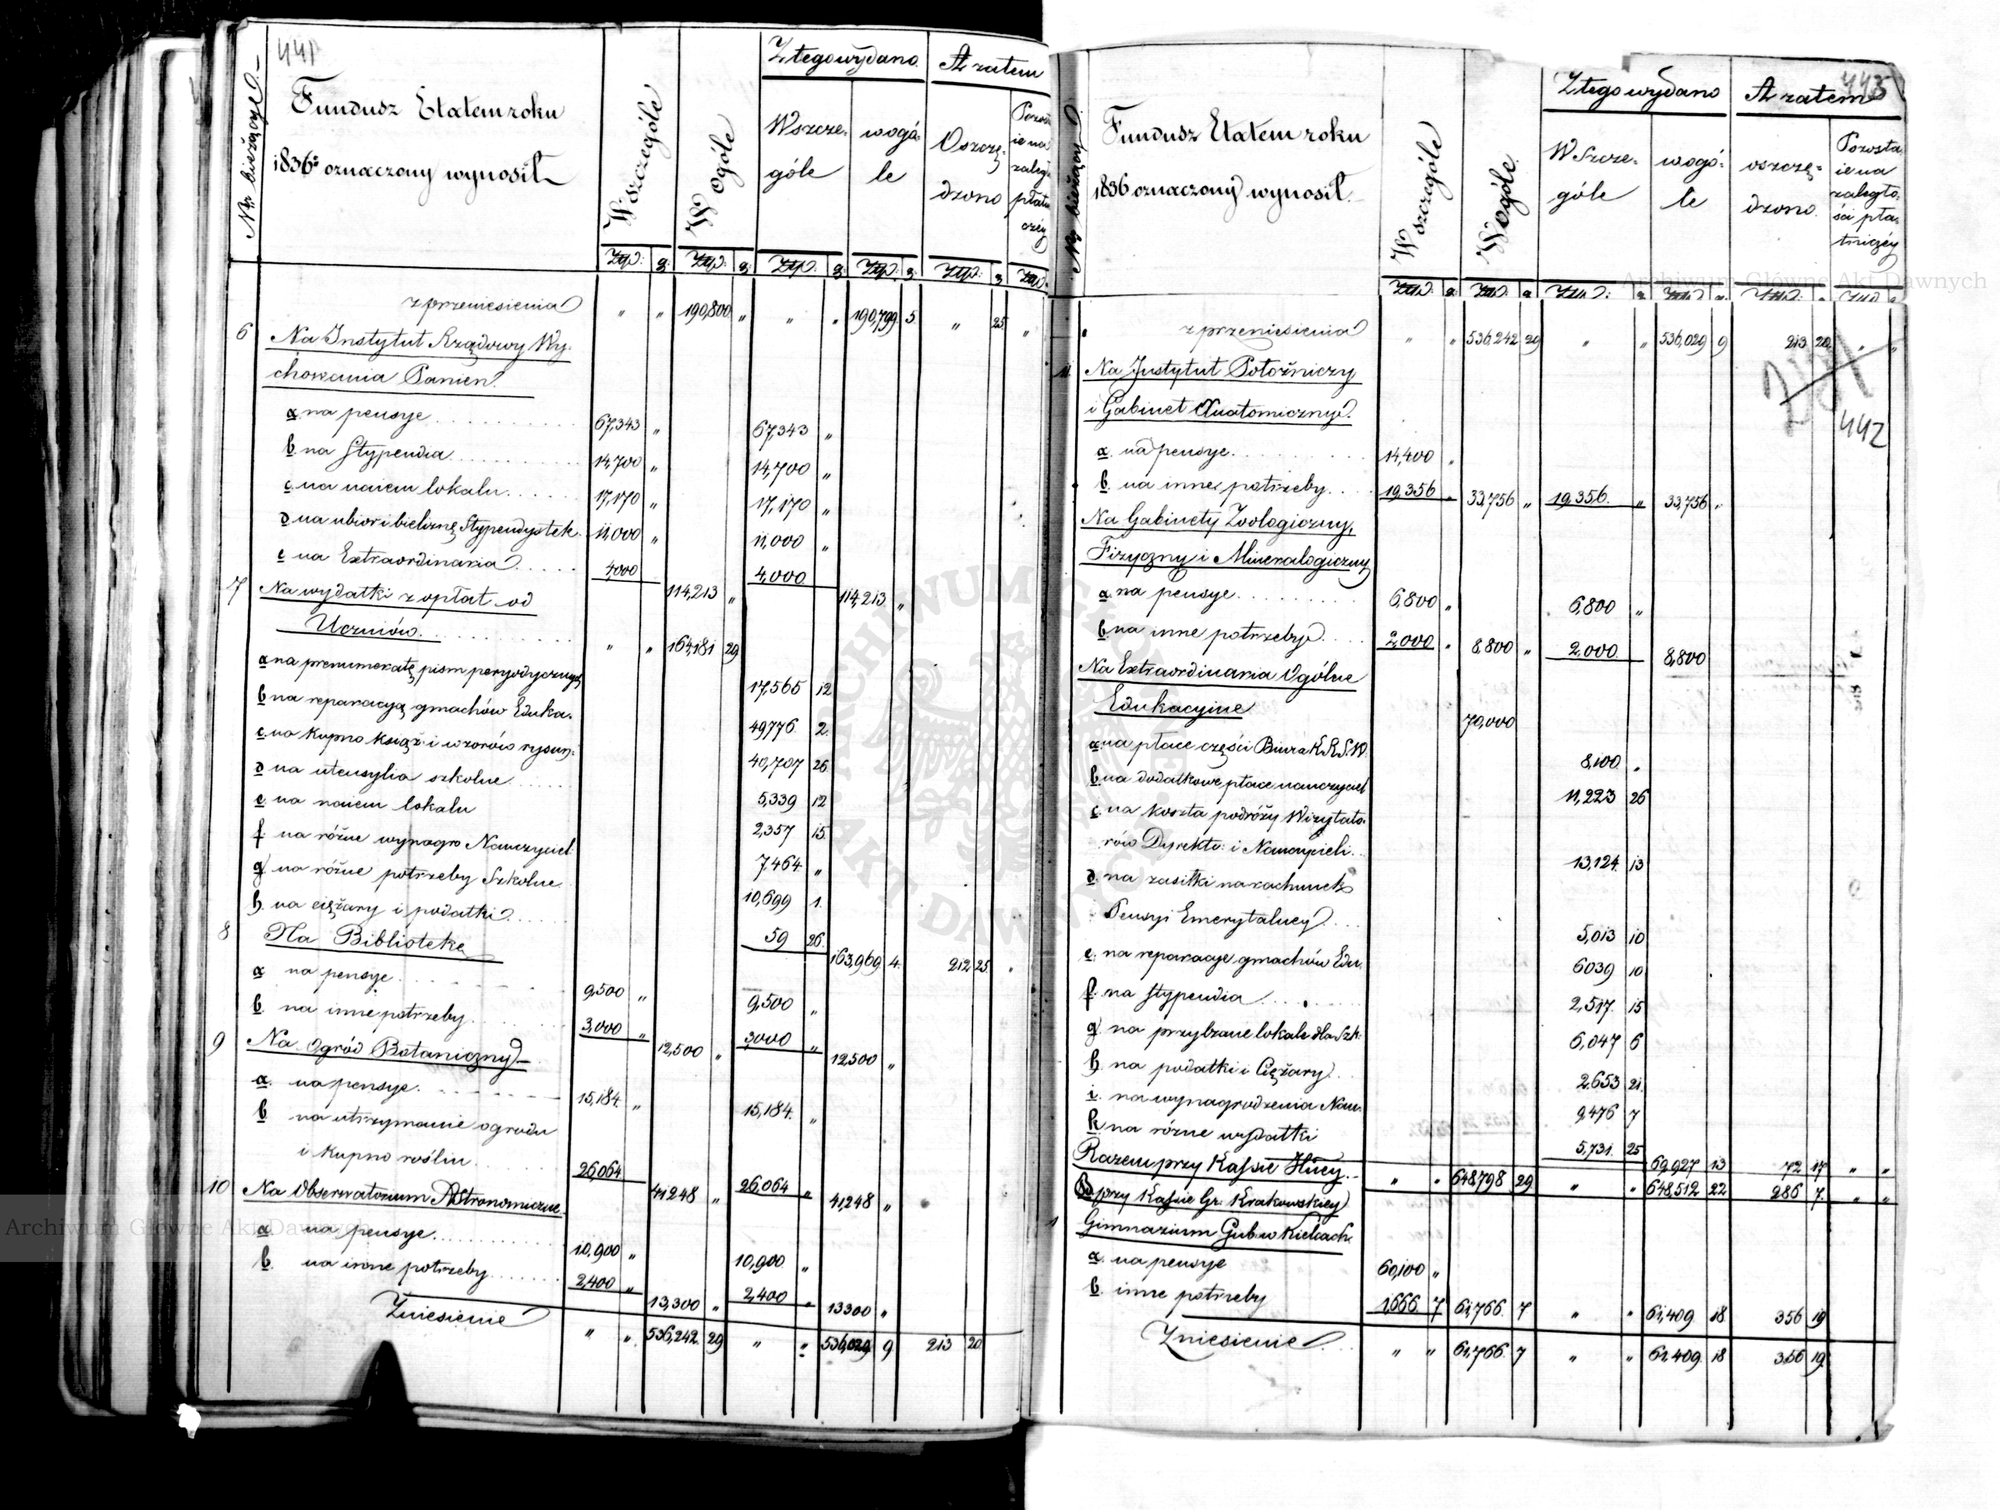 441
Nr bieżący
Fundusz Etatem roku
1836 oznaczony wynosił
Wszczególe
Wogóle
Z tego wydano
Wszcze-
góle
wogó-
le
A zatem
Oszczę-
dzono
Pozosta
ie na
zaleg
płatni
czéy
Złp: g. Złp: g. Złp. g: Złp. g. Złp: g Złp.
z przeniesienia " " 190,800 " " " 190,799 5. " 25 "
6 Na Instytut Rządowy Wy-
chowania Panien.
a na pensye 67,343 " 67,343 "
b na Stypendia 14,700 " 14,700 "
c na naiem lokalu 17,170 " 17,170 "
d na ubior i bieliznę Stypendystek 11,000 " 11,000 "
e na Extraordinaria 4,000 114,213 " 4,000 114,213 "
7 Na wydatki z opłat od
Uczniów " " 164,181 29
a na prenumeratę pism peryodycznych 17,565 12
b na reparacyą gmachów Eduka. 49,776 2.
c na kupno książ: i wzorów rysun: 40,707 26
d na utensylia szkolne 5,339 12
e na naiem lokalu 2,357 15
f na różne wynagro Nauczyciel 7,464 "
g na różne potrzeby Szkolne 10,699 1.
h na ciężary i podatki 59 26 163,969 4. 212 25 "
8 Na Bibliotekę
a na pensye 9,500 " 9,500 "
b na inne potrzeby 3,000 " 12,500 " 3,000 " 12,500 "
9 Na Ogród Botaniczny
a. na pensye 15,184. " 15,184. "
b na utrzymanie ogrodu
i kupno roślin 26,064 41,248 " 26,064 " 41,248 "
10 Na Observatorium Astronomiczne
a na pensye 10,900 " 10,900 "
b. na inne potrzeby 2,400 " 13,300 " 2,400 " 13300 "
Zniesienie " " 536,242. 29 " " 536,029 9 213 20
443
Nr bieżący
Fundusz Etatem roku
1836 oznaczony wynosił.
Wszczególe
Wogóle.
Z tego wydano
WSzcze-
góle
wogó-
le
A zatem
oszczę-
dzono.
Pozosta-
ie na
zaległo-
ści pła-
tniczéy
Złp: g. Złp: g Złp: g. Złp: g Złp: g Złp g
z przeniesienia " " 536,242 29 " " 536,029 9 213 20 " "
442
11 Na Instytut Położniczy
i Gabinet Anatomiczny.
a. na pensye 14,400 "
b. na inne potrzeby 19,356 " 33,756 " 19,356. " 33,756 "
Na Gabinety Zoologiczny,
Fizyczny i Mineralogiczny
a. na pensye 6,800 " 6,800 "
b na inne potrzeby 2,000 " 8,800 " 2,000. 8,800
Na Extraordinaria Ogólne
Edukacyine 70,000
a na płace części Biura K.R.S.W. 8,100. "
b na dodatkowe płace nauczyciel 11,223 26
c na koszta podróży Wizytato-
rów Dyrekto: i Nauczycieli 13,124. 13
d. na zasiłki na rachunek
Pensyi Emerytalney 5,013 10
e. na reparacye gmachów Edu. 6039 10
f. na Stypendia 2,517. 15
g na przybrane lokale dla Szk: 6,047 6
h na podatki i Ciężary 2,653 21.
i. na wynagrodzenia Nau. 9,476 7
k na różne wydatki 5,731. 25 69,927 13 72 17 " "
Razem przy Kassie Głney " " 648,798 29 " " 648,512 22 286 7. " "
przy Kassie Gr. Krakowskiey
1 Gimnazium Gub. w Kielcach.
a. na pensye 60,100 "
b. inne potrzeby 1,666 7 61,766. 7 " " 61,409 18 356 19
Zniesienie " " 61,766. 7 " " 61,409. 18 356 19.
Archiwum Główne Akt Dawnych
Archiwum Główne Akt Dawnych
ARCHIWUM GŁÓWNE AKT DAWNYCH